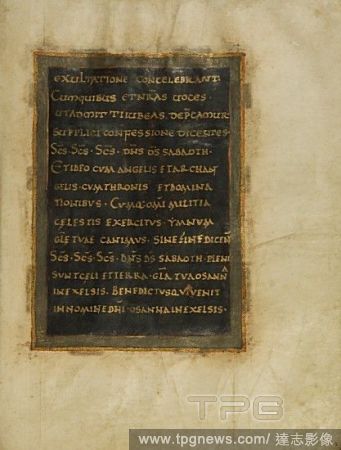 EXULTATIONE CONCELEBRANT.
CUMQUIBUS ET NRAS UOCES
UTADMITTI IUBEAS. DEPCAMUR
SUPPLICI CONFESSIONE DICENTES
SCS. SCS. SCS. DNS DS SABAOTH.
ETIDEO CUM ANGELIS ET ARCHAN
GELIS. CUM THRONIS ET DOMINA
TIONIBUS. CUMQ. OMI MILITIA
CELESTIS EXERCITUS. YMNUM
GLE TUAE CANIMUS. SINE FINE DICEN
SCS. SCS. SCS. DNS DS SABAOTH. PLENI
SUNT CELI ET TERRA. GLA TUA OSANN
IN EXELSIS. BENEDICTUS QUI UENIT
IN NOMINE DNI. OSANNA IN EXELSIS.
TPG
www.tpgnews.com/達志影像